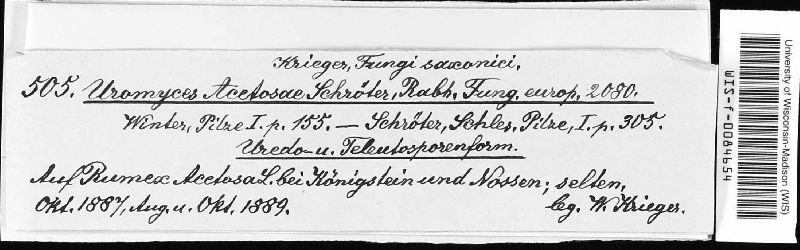 Krieger, Fungi saxonici.
505. Uromyces Acetosae Schröter, Rabh. Fung. europ. 2080.
Winter, Pilze I. p. 155. — Schröter, Schles. Pilze, I. p. 305.
Uredo- u. Teleutosporenform.
Auf Rumex Acetosa L. bei Königstein und Nossen; selten.
Okt. 1887, Aug. u. Okt. 1889. lg. W. Krieger.
University of Wisconsin-Madison (WIS)
WIS-f-0084654